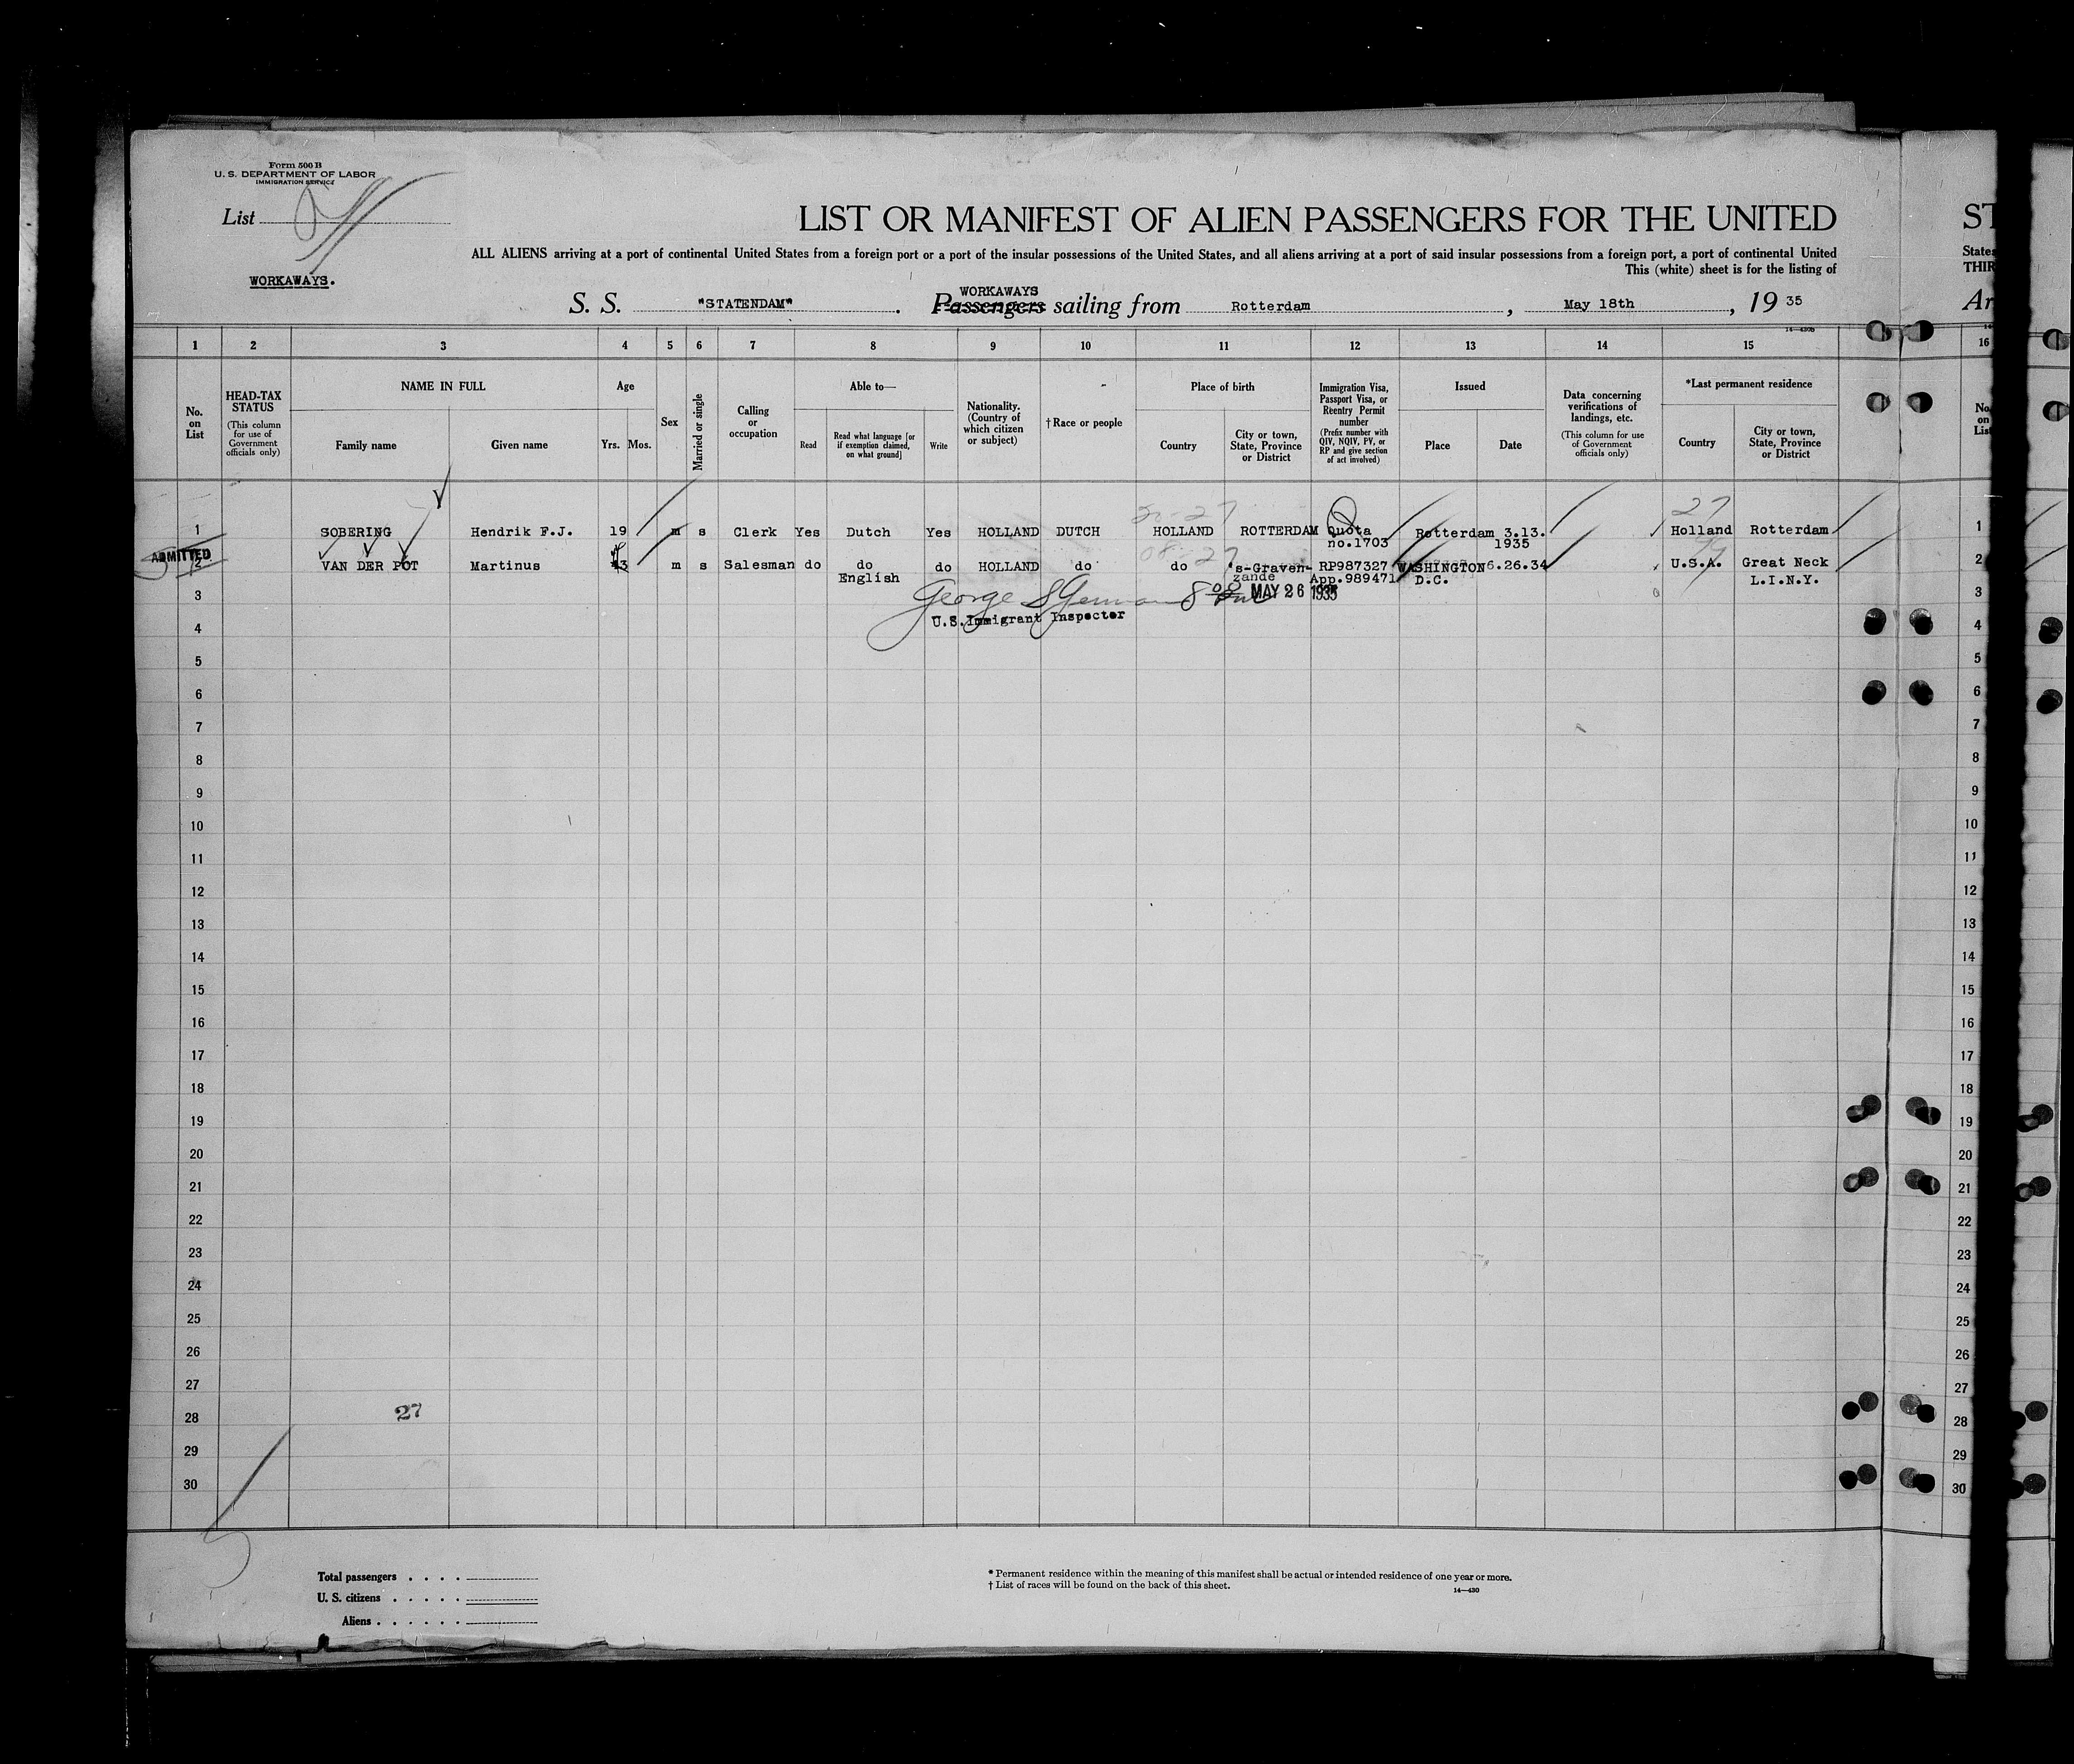 Form 500 B
U. S. DEPARTMENT OF LABOR
IMMIGRATION SERVICE
List
WORKAWAYS.
LIST OR MANIFEST OF ALIEN PASSENGERS FOR THE UNITED
ALL ALIENS arriving at a port of continental United States from a foreign port or a port of the insular possessions of the United States, and all aliens arriving at a port of said insular possessions from a foreign port, a port of continental United
This (white) sheet is for the listing of
WORKAWAYS
S. S. "STATENDAM". Passengers sailing from Rotterdam, May 18th, 19 35
ST
States
THIR
Ar
14—430b
1 2 3 4 5 6 7 8 9 10 11 12 13 14 15 16
No. on List
HEAD-TAX STATUS
(This column for use of Government officials only)
NAME IN FULL
Family name Given name
Age
Yrs. Mos.
Sex
Married or single
Calling or occupation
Able to—
Read
Read what language [or if exemption claimed, on what ground]
Write
Nationality. (Country of which citizen or subject)
†Race or people
Place of birth
Country
City or town, State, Province or District
Immigration Visa, Passport Visa, or Reentry Permit number
(Prefix number with QIV, NQIV, PV, or RP and give section of act involved)
Issued
Place Date
Data concerning verifications of landings, etc.
(This column for use of Government officials only)
*Last permanent residence
Country
City or town, State, Province or District
No. on List
27
1 SOBERING Hendrik F.J. 19 m s Clerk Yes Dutch Yes HOLLAND DUTCH HOLLAND ROTTERDAM Quota Rotterdam 3.13. Holland Rotterdam 1
no.1703 1935
ADMITTED
2 VAN DER POT Martinus 43 m s Salesman do do do HOLLAND do do 's-Graven- RP987327 WASHINGTON 6.26.34 U.S.A. Great Neck 2
English zande App.989471 D.C. L.I.N.Y.
3 George MAY 26 1935 3
U.S. Immigrant Inspector
4 4
5 5
6 6
7 7
8 8
9 9
10 10
11 11
12 12
13 13
14 14
15 15
16 16
17 17
18 18
19 19
20 20
21 21
22 22
23 23
24 24
25 25
26 26
27 27
27
28 28
29 29
30 30
Total passengers
U. S. citizens
Aliens
* Permanent residence within the meaning of this manifest shall be actual or intended residence of one year or more.
† List of races will be found on the back of this sheet.
14—430